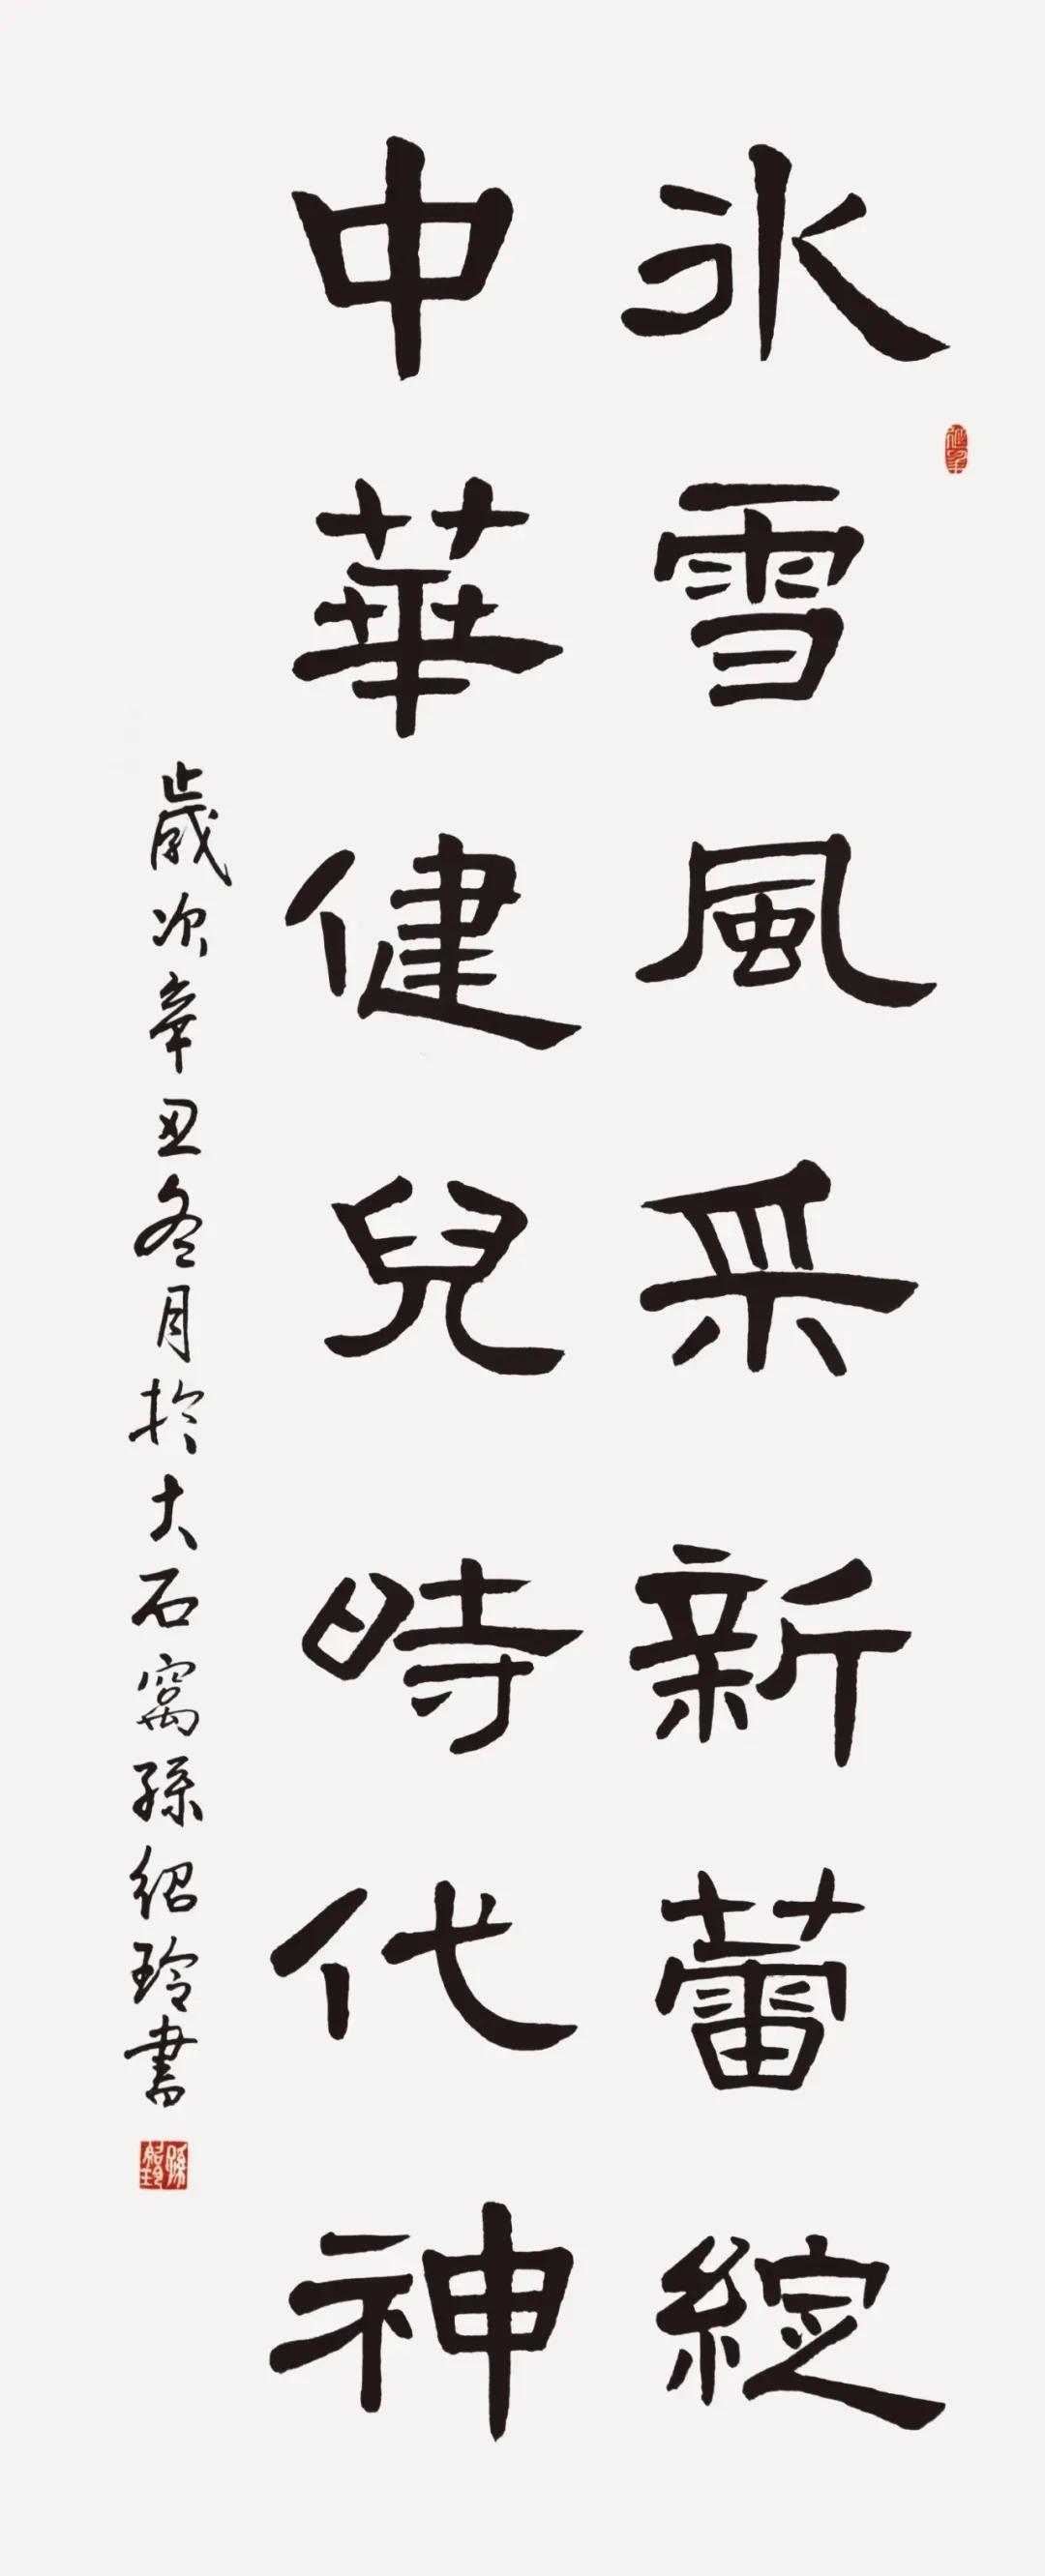 冰雪風采新蕾綻
中華健兒時代神
歲次辛丑冬月於大石窩孫紹玲書
孫紹玲